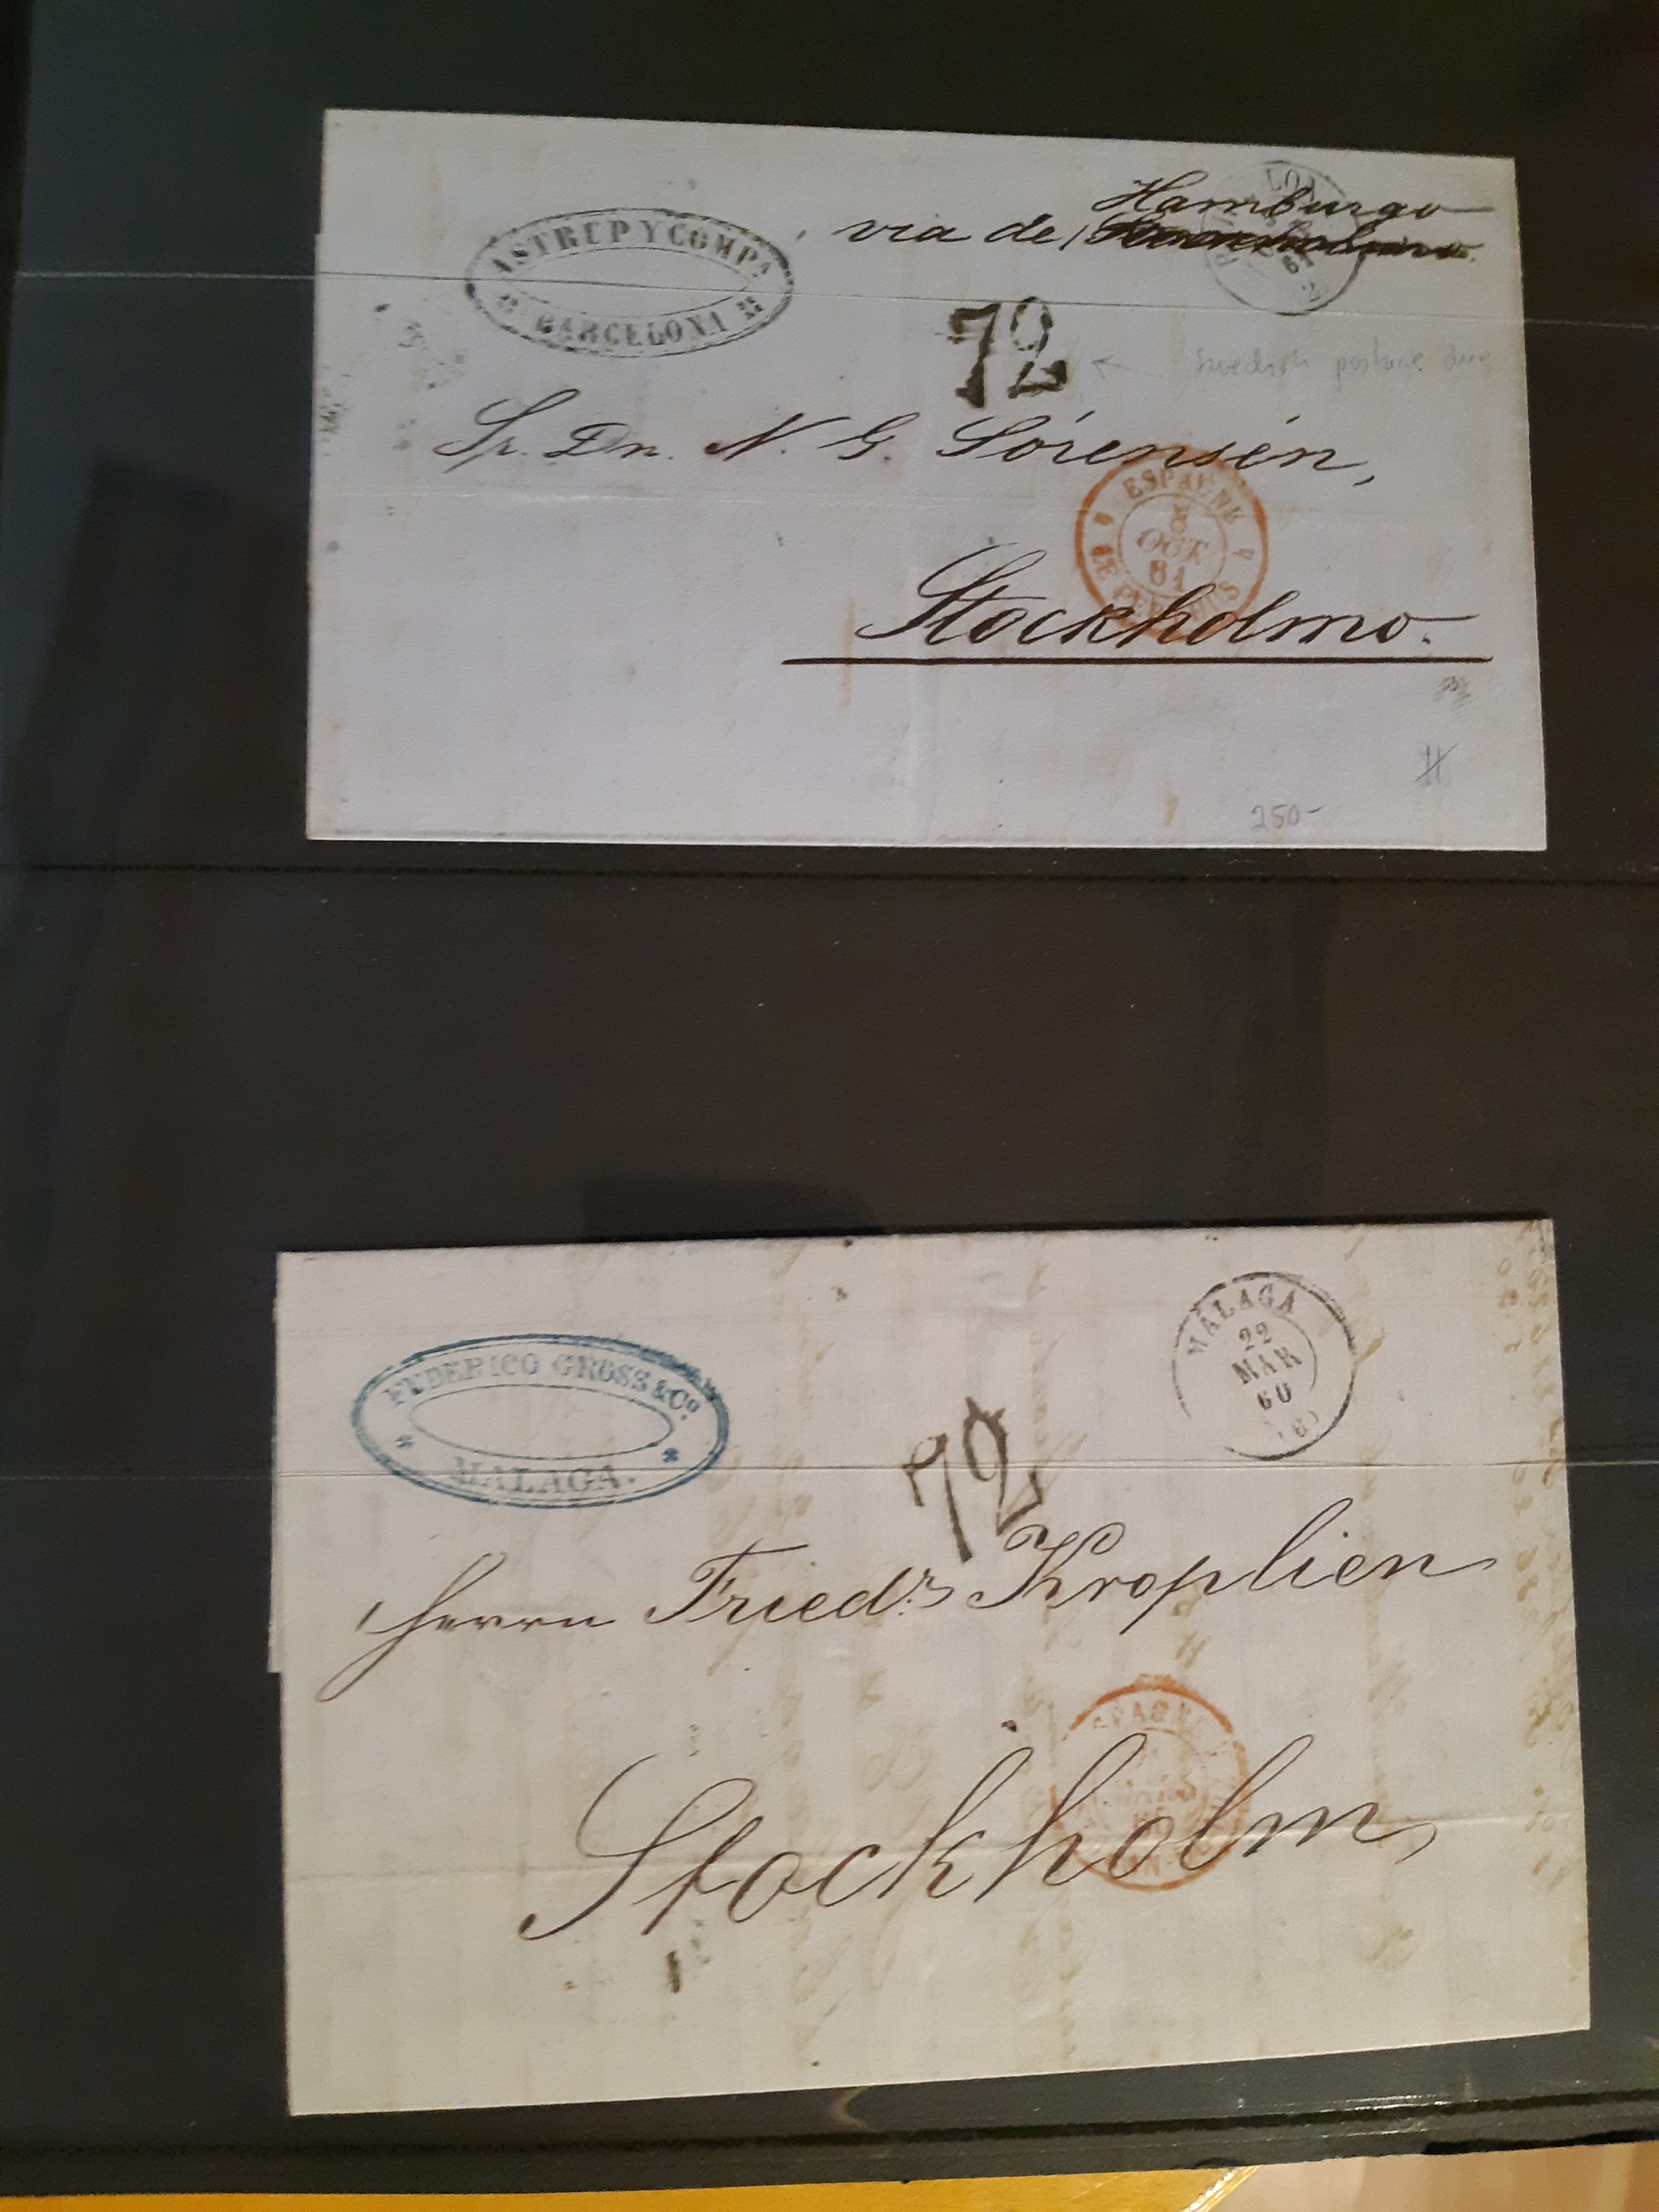 ASTREP Y COMPA
BARCELONA
Hamburgo
via de
61
72
Swedish postage due
Sr. Dn. N. G. Sórensén,
ESPAGNE
OCT
61
LE PERTHUS
Stockholmo.
250-
FEDERICO GROSS & Co.
MALAGA.
MÁLAGA
22
MAR
60
72
Herrn Friedr. Kroplien
ESPAGNE
Stockholm